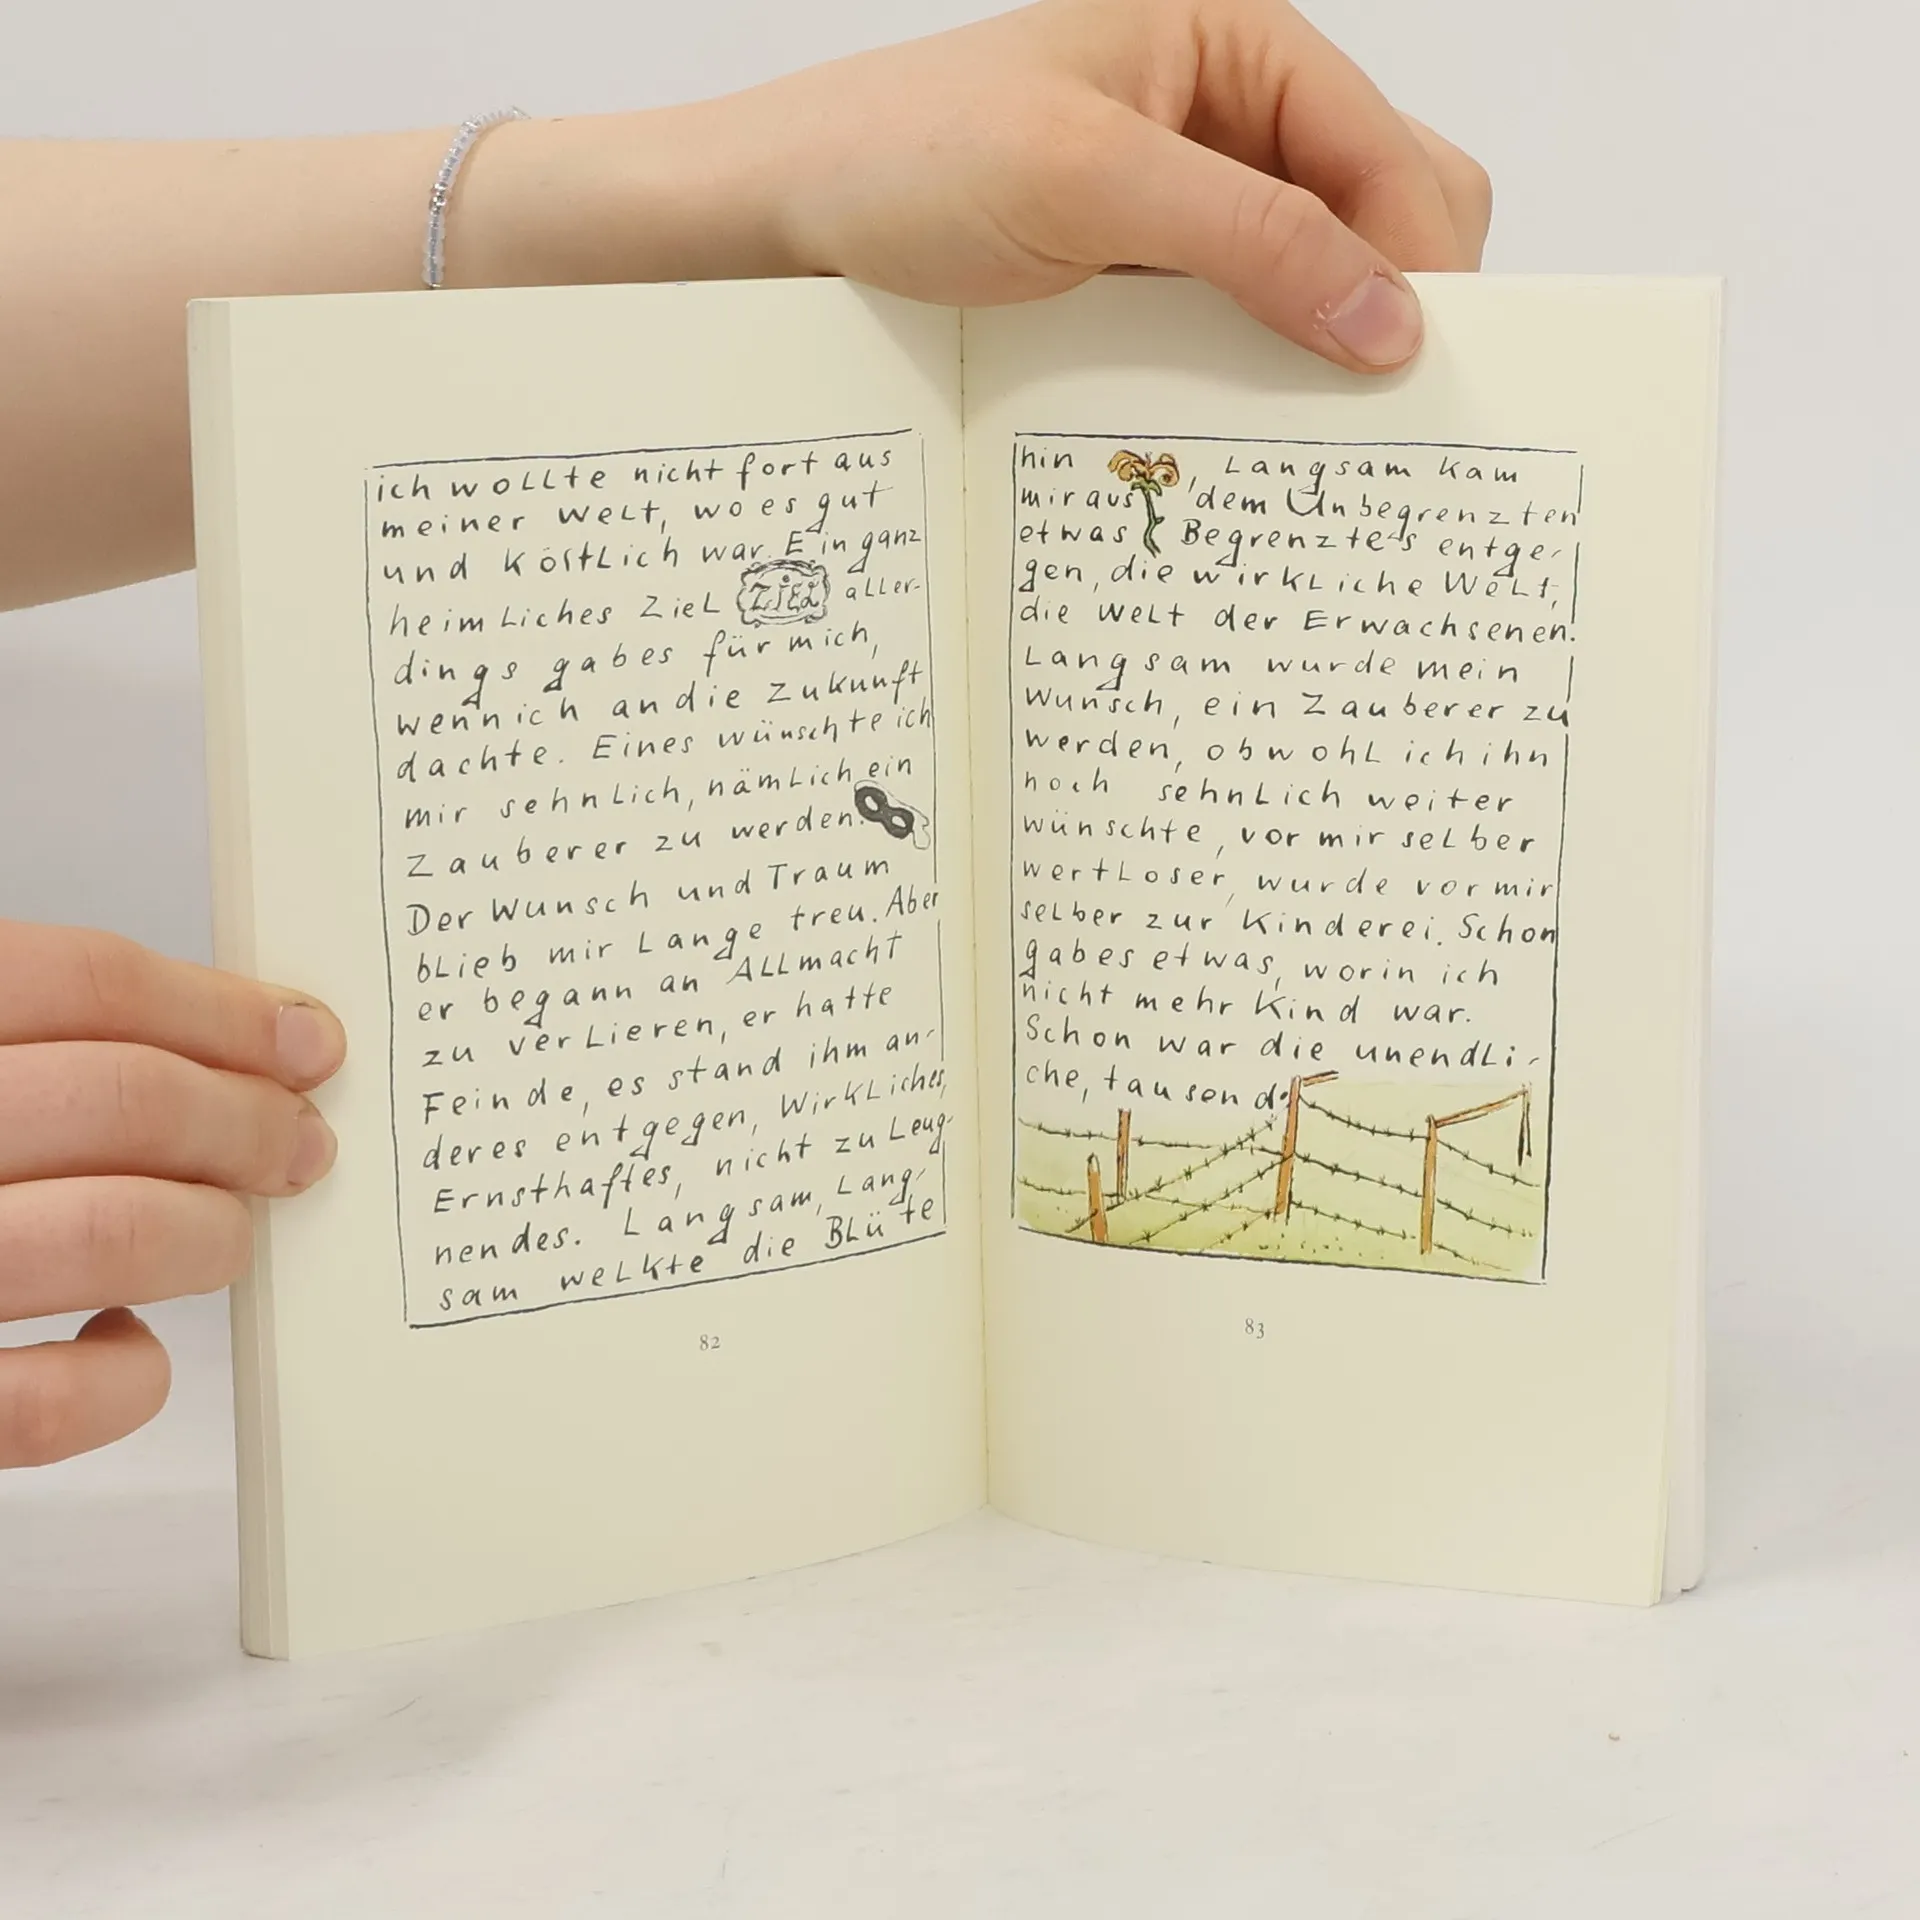 ich wollte nicht fort aus
meiner Welt, wo es gut
und köstlich war. Ein ganz
heimliches Ziel ZiEL aller-
dings gab es für mich,
wenn ich an die Zukunft
dachte. Eines wünschte ich
mir sehnlich, nämlich ein
Zauberer zu werden.
Der Wunsch und Traum
blieb mir lange treu. Aber
er begann an Allmacht
zu verlieren, er hatte
Feinde, es stand ihm an-
deres entgegen, Wirkliches,
Ernsthaftes, nicht zu Leug-
nendes. Langsam, lang-
sam welkte die Blüte
82
hin, Langsam kam
mir aus dem Unbegrenzten
etwas Begrenztes entge-
gen, die wirkliche Welt,
die Welt der Erwachsenen.
Langsam wurde mein
Wunsch, ein Zauberer zu
werden, obwohl ich ihn
noch sehnlich weiter
wünschte, vor mir selber
wertloser, wurde vor mir
selber zur Kinderei. Schon
gab es etwas, worin ich
nicht mehr Kind war.
Schon war die unendli-
che, tausend-
83